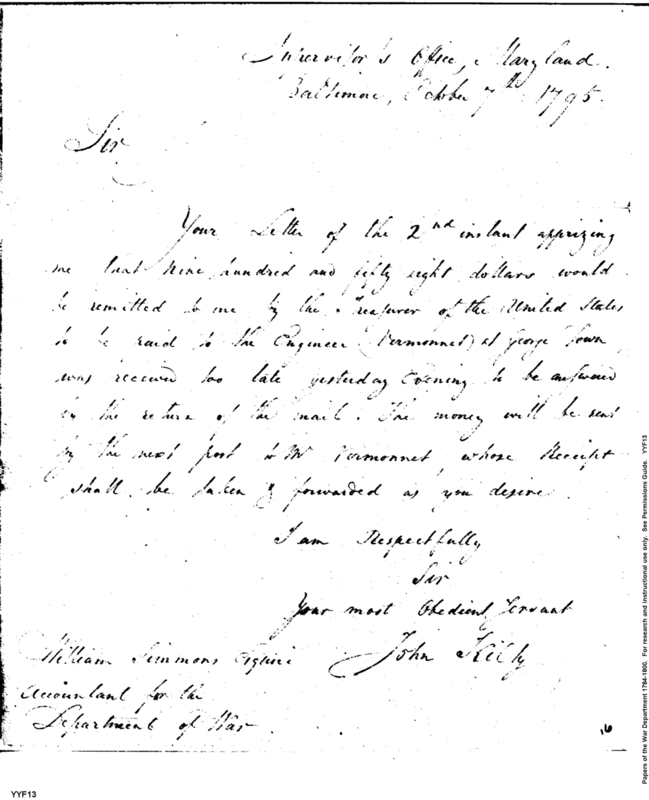 Supervisor's Office, Maryland.
Baltimore, October 7th 1795.
Sir
Your Letter of the 2nd instant apprizing
me that Nine hundred and fifty eight dollars would
be remitted to me by the Treasurer of the United States
to be paid to the Engineer (Vermonnet) at George Town
was received too late yesterday Evening to be answered
by the return of the mail. The money will be sent
by the next post to Mr Vermonnet whose Receipt
shall be taken & forwarded as you desire.
I am Respectfully
Sir
Your most Obedient Servant
John Kilty
William Simmons Esquire
Accountant for the
Department of War
16
YYF13
Papers of the War Department 1784-1800. For research and instructional use only. See Permissions Guide. YYF13